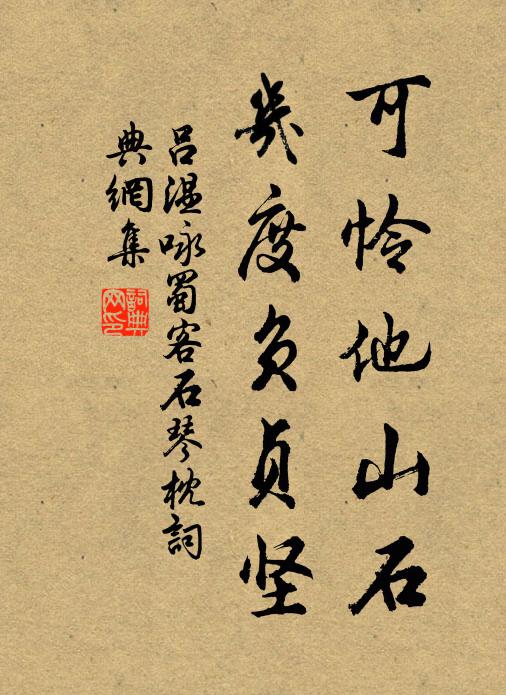 可怜他山石
几度负贞坚
吕温咏蜀客石琴枕詞
典網集
詞典網印